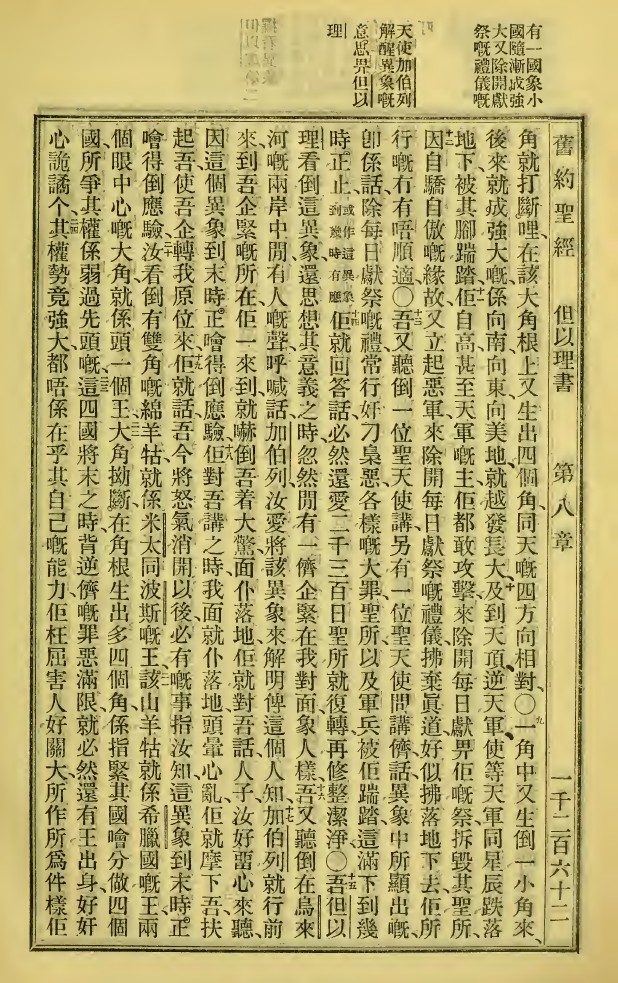 舊約聖經 但以理書 第八章 一千二百六十二
有一國象小
國隨漸成強
大又除開獻
祭嘅禮儀嘅
天使加伯列
解醒異象嘅
意思畀但以
理
角就打斷哩、在該大角根上又生出四個角、同天嘅四方向相對、〇九一角中又生倒一小角來、
後來就成強大嘅、係向南、向東、向美地、就越發長大、十及到天頂、逆天軍、使等天軍同星辰跌落
地下、被其腳踹踏、十一佢自高甚至天軍嘅主、佢都敢攻擊、來除開每日獻畀佢嘅祭、拆毀其聖所、
十二因自驕自傲嘅緣故、又立起惡軍來除開每日獻祭嘅禮儀、拂棄眞道、好似拂落地下去、佢所
行嘅冇有唔順適、〇十三吾又聽倒一位聖天使講、另有一位聖天使問講儕話、異象中所顯出嘅、
卽係話除每日獻祭嘅禮、常行奸刁梟惡各樣嘅大罪、聖所以及軍兵被佢踹踏、這滿下到幾
時正止、或作這異象到幾時有應十四佢就回答話、必然還愛二千三百日、聖所就復轉再修整潔淨、〇十五吾但以
理看倒這異象、還思想其意義之時、忽然閒有一儕企緊在我對面、象人樣、十六吾又聽倒在烏來
河嘅兩岸中閒有人嘅聲、呼喊話、加伯列、汝愛將該異象來解明俾這個人知、十七加伯列就行前
來到吾企緊嘅所在、佢一來到、就嚇倒吾着大驚、面仆落地、佢就對吾話、人子、汝好畱心來聽、
因這個異象到末時正噲得倒應驗、十八佢對吾講之時、我面就仆落地、頭暈心亂、佢就摩下吾、扶
起吾、使吾企轉我原位來、十九佢就話、吾今將怒氣消開以後必有嘅事指汝知、這異象到末時正
噲得倒應驗、二十汝看倒有雙角嘅綿羊牯、就係米太同波斯嘅王、二一該山羊牯就係希臘國嘅王、兩
個眼中心嘅大角、就係頭一個王、二二大角拗斷、在角根生出多四個角、係指緊其國噲分做四個
國、所爭其權係弱過先頭嘅、二三這四國將末之時、背逆儕嘅罪惡滿限、就必然還有王出身、好奸
心詭譎个、二四其權勢竟強大、都唔係在乎其自己嘅能力、佢枉屈害人好關大、所作所爲件樣佢